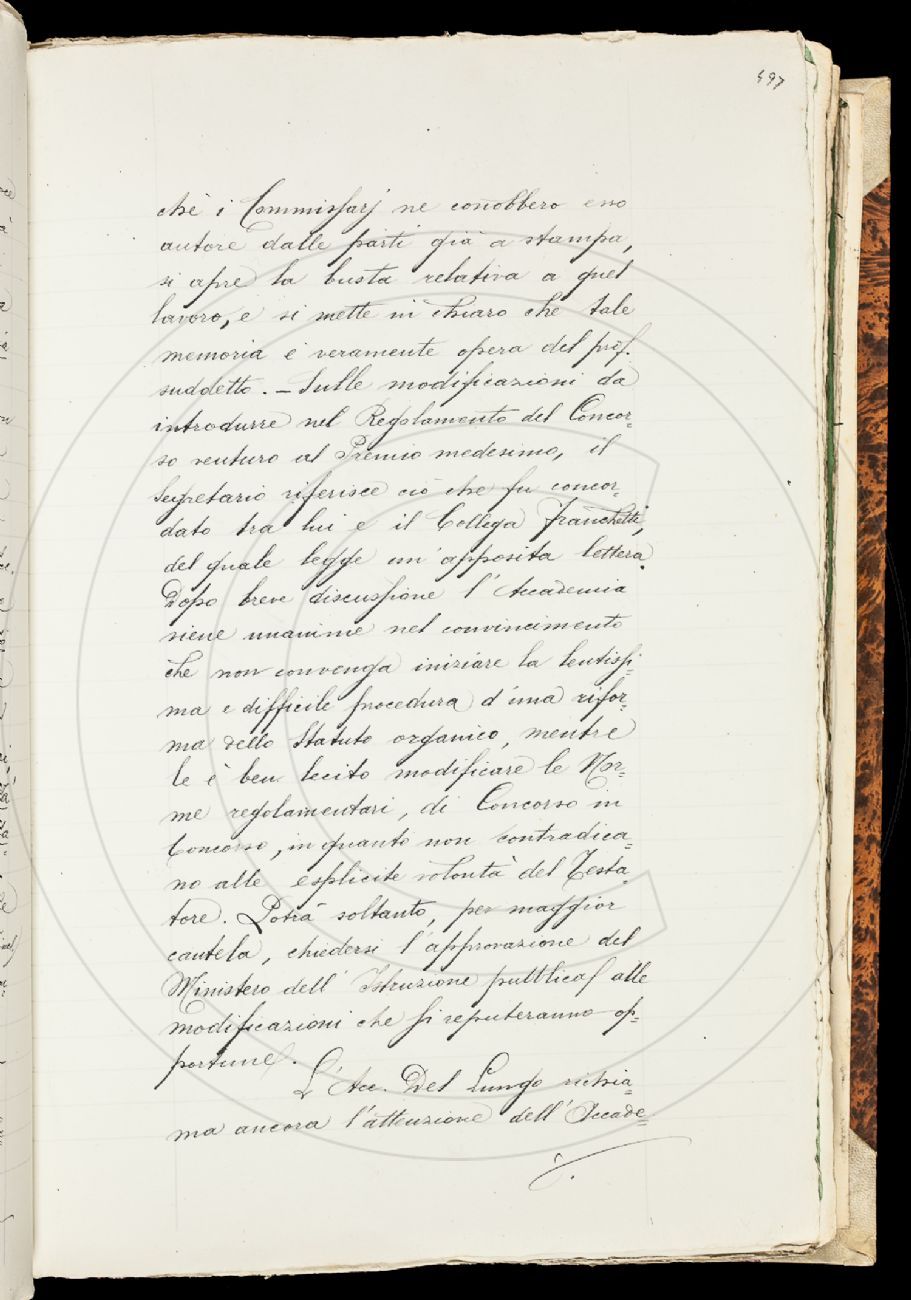 497
chè i Commissarj ne conobbero esso
autore dalle parti già a stampa,
si apre la busta relativa a quel
lavoro, e si mette in chiaro che tale
memoria è veramente opera del prof.
suddetto. – Sulle modificazioni da
introdurre nel Regolamento del Concor=
so venturo al Premio medesimo, il
Segretario riferisce ciò che fu concor=
dato tra lui e il Collega Franchetti,
del quale legge un'apposita lettera.
Dopo breve discussione l'Accademia
viene unanime nel convincimento
che non convenga iniziare la lentissi=
ma e difficile procedura d'una rifor=
ma dello Statuto organico, mentre
le è ben lecito modificare le Nor=
me regolamentari, di Concorso in
Concorso, in quanto non contradica=
no alle esplicite volontà del Testa=
tore. Potrà soltanto, per maggior
cautela, chiedersi l'approvazione del
Ministero dell'Istruzione pubblica alle
modificazioni che si reputeranno op=
portune.
L'Acc. Del Lungo richia=
ma ancora l'attenzione dell'Accade=